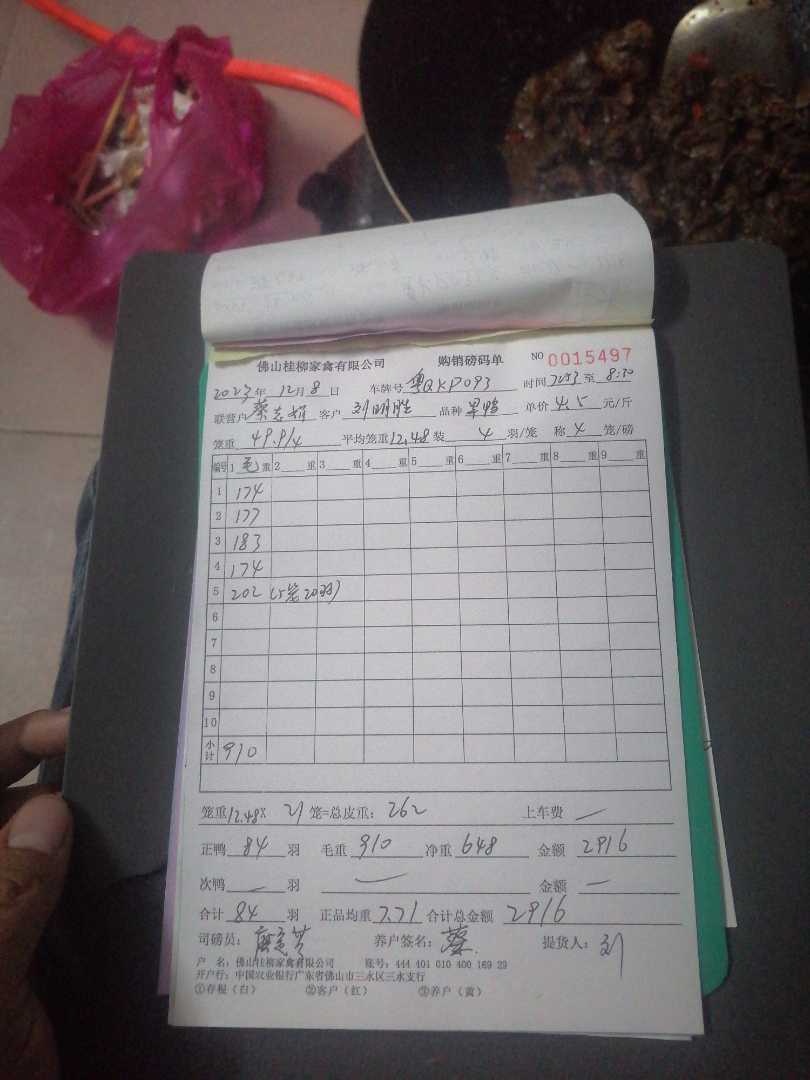 佛山桂柳家禽有限公司 购销磅码单 NO 0015497
2023年 12月 8日 车牌号 粤QKP093 时间 7:53 至 8:30
联营户 蔡志娟 客户 刘明胜 品种 单价 4.5 元/斤
笼重 49.9/4 平均笼重 12.48 装 4 羽/笼 称 4 笼/磅
编号 1 毛 重 2 重 3 重 4 重 5 重 6 重 7 重 8 重 9 重
1 174
2 177
3 183
4 174
5 202 (5笼20羽)
6
7
8
9
10
小计 910
笼重 12.48 X 21 笼=总皮重: 262 上车费 —
正鸭 84 羽 毛重 910 净重 648 金额 2916
次鸭 — 羽 — 金额 —
合计 84 羽 正品均重 7.71 合计总金额 2916
司磅员: 养户签名: 蔡 提货人: 刘
户 名: 佛山桂柳家禽有限公司 账号: 444 401 010 400 169 29
开户行: 中国农业银行广东省佛山市三水区三水支行
①存根(白) ②客户(红) ③养户(黄)